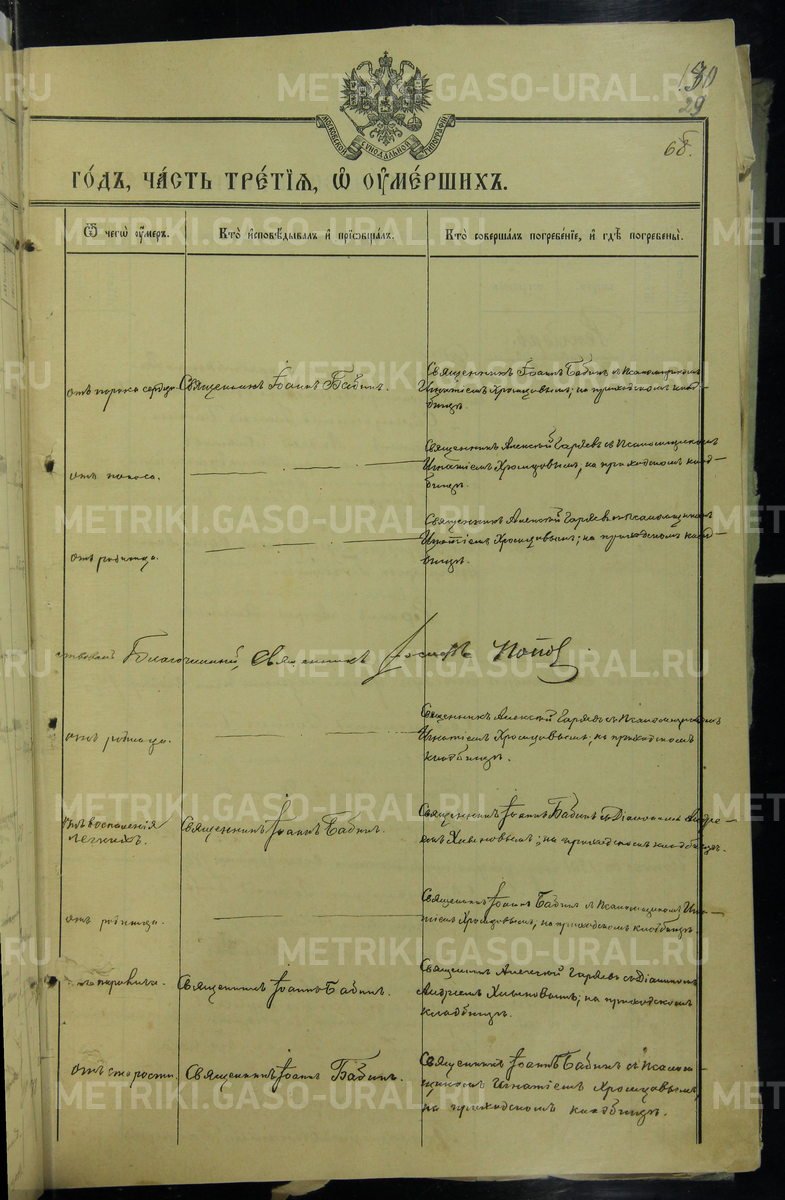 130
29
68.
МОСКОВСКОЙ СѴНОДАЛЬНОЙ ТИПОГРАФІИ
го́дъ, ча́сть тре́тїѧ, ѡ҆ ᲂу҆ме́ршихъ.
Ѿ чегѡ̀ ᲂу҆́меръ.
Кто̀ и҆сповѣ́дывалъ и҆ прїѡбща́лъ.
Кто̀ соверша́лъ погребе́нїе, и҆ гдѣ̀ погребены̀.
отъ порока сердца
Священникъ Іоаннъ Бабинъ.
Священникъ Іоаннъ Бабинъ съ Псаломщикомъ
Игнатіемъ Хромцовымъ; на приходскомъ клад-
бищѣ.
отъ поноса.
Священникъ Алексѣй Гаряевъ съ Псаломщикомъ
Игнатіемъ Хромцовымъ, на приходскомъ клад-
бищѣ.
отъ родимца.
Священникъ Алексѣй Гаряевъ съ Псаломщикомъ
Игнатіемъ Хромцовымъ; на приходскомъ клад-
бищѣ.
Благочинный, Священникъ Іосифъ Поповъ
отъ родимца.
Священникъ Алексѣй Гаряевъ съ Псаломщикомъ
Игнатіемъ Хромцовымъ; на приходскомъ
кладбищѣ.
отъ воспаленія
легкихъ.
Священникъ Іоаннъ Бабинъ.
Священникъ Іоаннъ Бабинъ съ Діакономъ Андре-
емъ Хлыновымъ; на приходскомъ кладбищѣ.
отъ родимца.
Священникъ Іоаннъ Бабинъ съ Псаломщикомъ Игна-
тіемъ Хромцовымъ, на приходскомъ кладбищѣ.
Священникъ Іоаннъ Бабинъ.
Священникъ Алексѣй Гаряевъ съ Діакономъ
Андреемъ Хлыновымъ; на приходскомъ
кладбищѣ.
отъ старости.
Священникъ Іоаннъ Бабинъ.
Священникъ Іоаннъ Бабинъ съ Псалом-
щикомъ Игнатіемъ Хромцовымъ,
на приходскомъ кладбищѣ.
METRIKI.GASO-URAL.RU